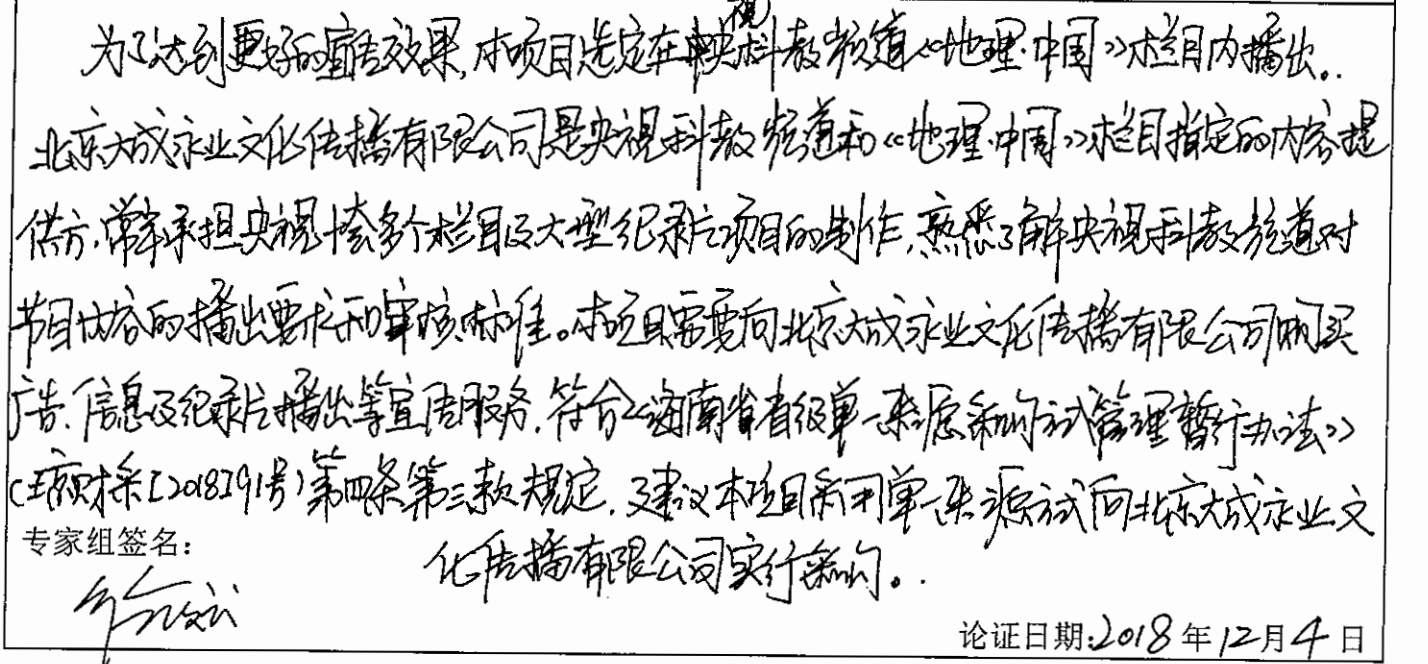 为了达到更好的宣传效果,本项目选定在央视科教频道《地理·中国》栏目内播出。
北京大成永业文化传播有限公司是央视科教频道和《地理·中国》栏目指定的内容提
供方,常年承担央视十套多个栏目及大型纪录片项目的制作,熟悉了解央视科教频道对
节目内容的播出要求和审核标准。本项目需要向北京大成永业文化传播有限公司购买
广告、信息及纪录片播出等宣传服务,符合《海南省省级单一来源采购方式管理暂行办法》
(琼财采[2018]91号)第四条第三款规定,建议本项目采用单一来源方式向北京大成永业文
化传播有限公司实行采购。
专家组签名:
论证日期:2018年12月4日